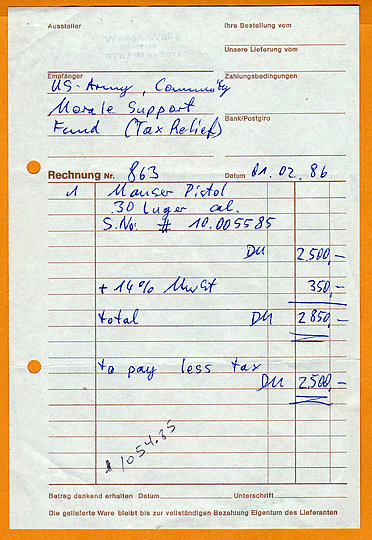 Aussteller
Ihre Bestellung vom
Unsere Lieferung vom
Empfänger
Zahlungsbedingungen
US-Army, Community
Morale Support
Bank/Postgiro
Fund (Tax Relief)
Rechnung Nr. 863 Datum 01.02.86
1 Mauser Pistol
.30 Luger cal.
S.No: # 10.005585
DM 2.500,-
+ 14% MwSt 350,-
total DM 2 850,-
to pay less tax
DM 2.500,-
1054.85
Betrag dankend erhalten Datum Unterschrift
Die gelieferte Ware bleibt bis zur vollständigen Bezahlung Eigentum des Lieferanten